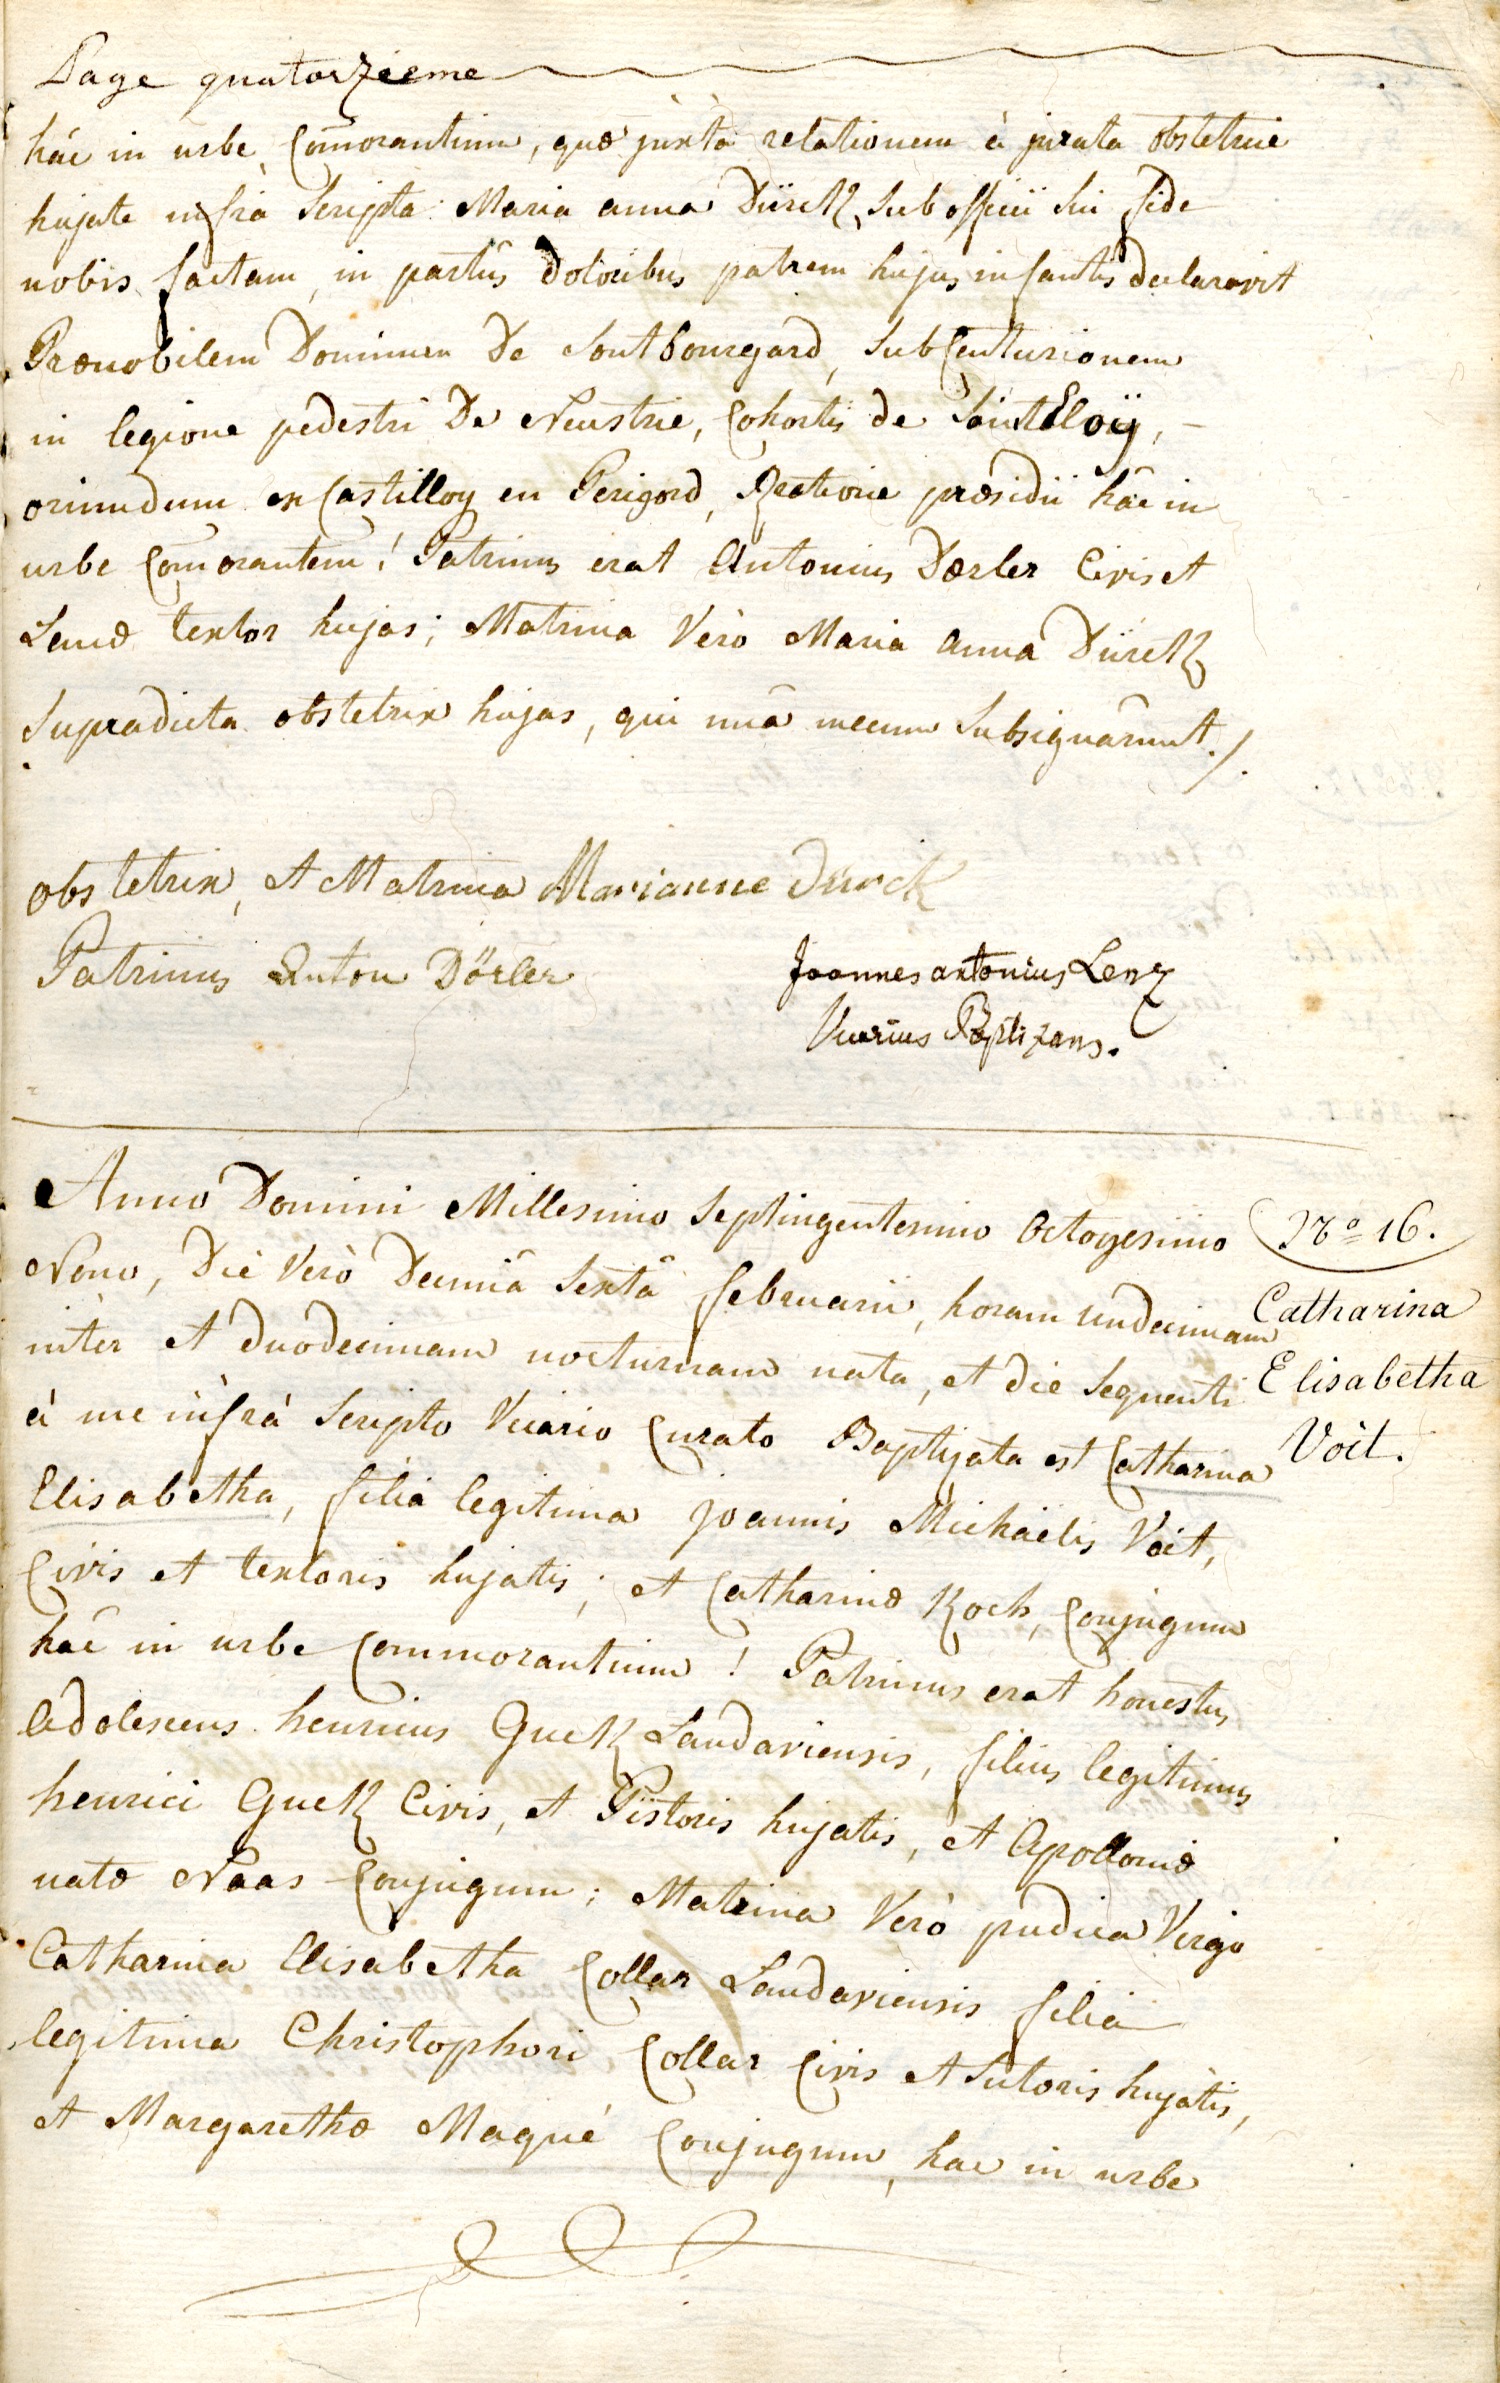 Page quatorzieme
hâc in urbe Com̄orantium, quæ juxtà relationem à jurata obstetrice
hujate infrà Scripta Maria anna Dürck, Sub officii Sui fide
nobis factam, in partûs doloribus patrem hujus infantis declaravit
Prænobilem Dominum De Sontbouregard, SubCenturionem
in legione pedestri De Neustrie, Cohortis de SaintEloÿ, -
oriundum ex Castilloy en Perigord, Ratione præsidii hâc in
urbe Com̄orantem! Patrinus erat Antonius Dærler Civis et
Lanæ textor hujas; Matrina Verò Maria anna Dürck
Supradicta obstetrix hujas, qui unâ mecum Subsignârunt./.
obstetrix, et Matrina Marianne Dürck
Patrinus Anton Dörler
Joannes antonius Lenz
Vicarius Baptizans.
Anno Domini Millesimo Septingentesimo Octogesimo
Nono, Die Verò Decimâ Sextâ februarii, horam undecimam
inter et duodecimam nocturnam nata, et die Sequenti
à me infrà Scripto Vicario Curato Baptizata est Catharina
Elisabetha, filia legitima joannis Michaëlis Voit,
Civis et textoris hujatis; et Catharinæ Koch, Conjugum
hâc in urbe Commorantium! Patrinus erat honestus
Adolescens henricus Guck Landaviensis, filius legitimus
henrici Guck Civis, et Pistoris hujatis, et Apolloniæ
natæ Naas Conjugum; Matrina Verò pudica Virgo
Catharina Elisabetha Collar Landaviensis filia
legitima Christophori Collar Civis et Sutoris hujatis,
et Margarethæ Maqué Conjugum, hac in urbe
Nº 16.
Catharina
Elisabetha
Voit.